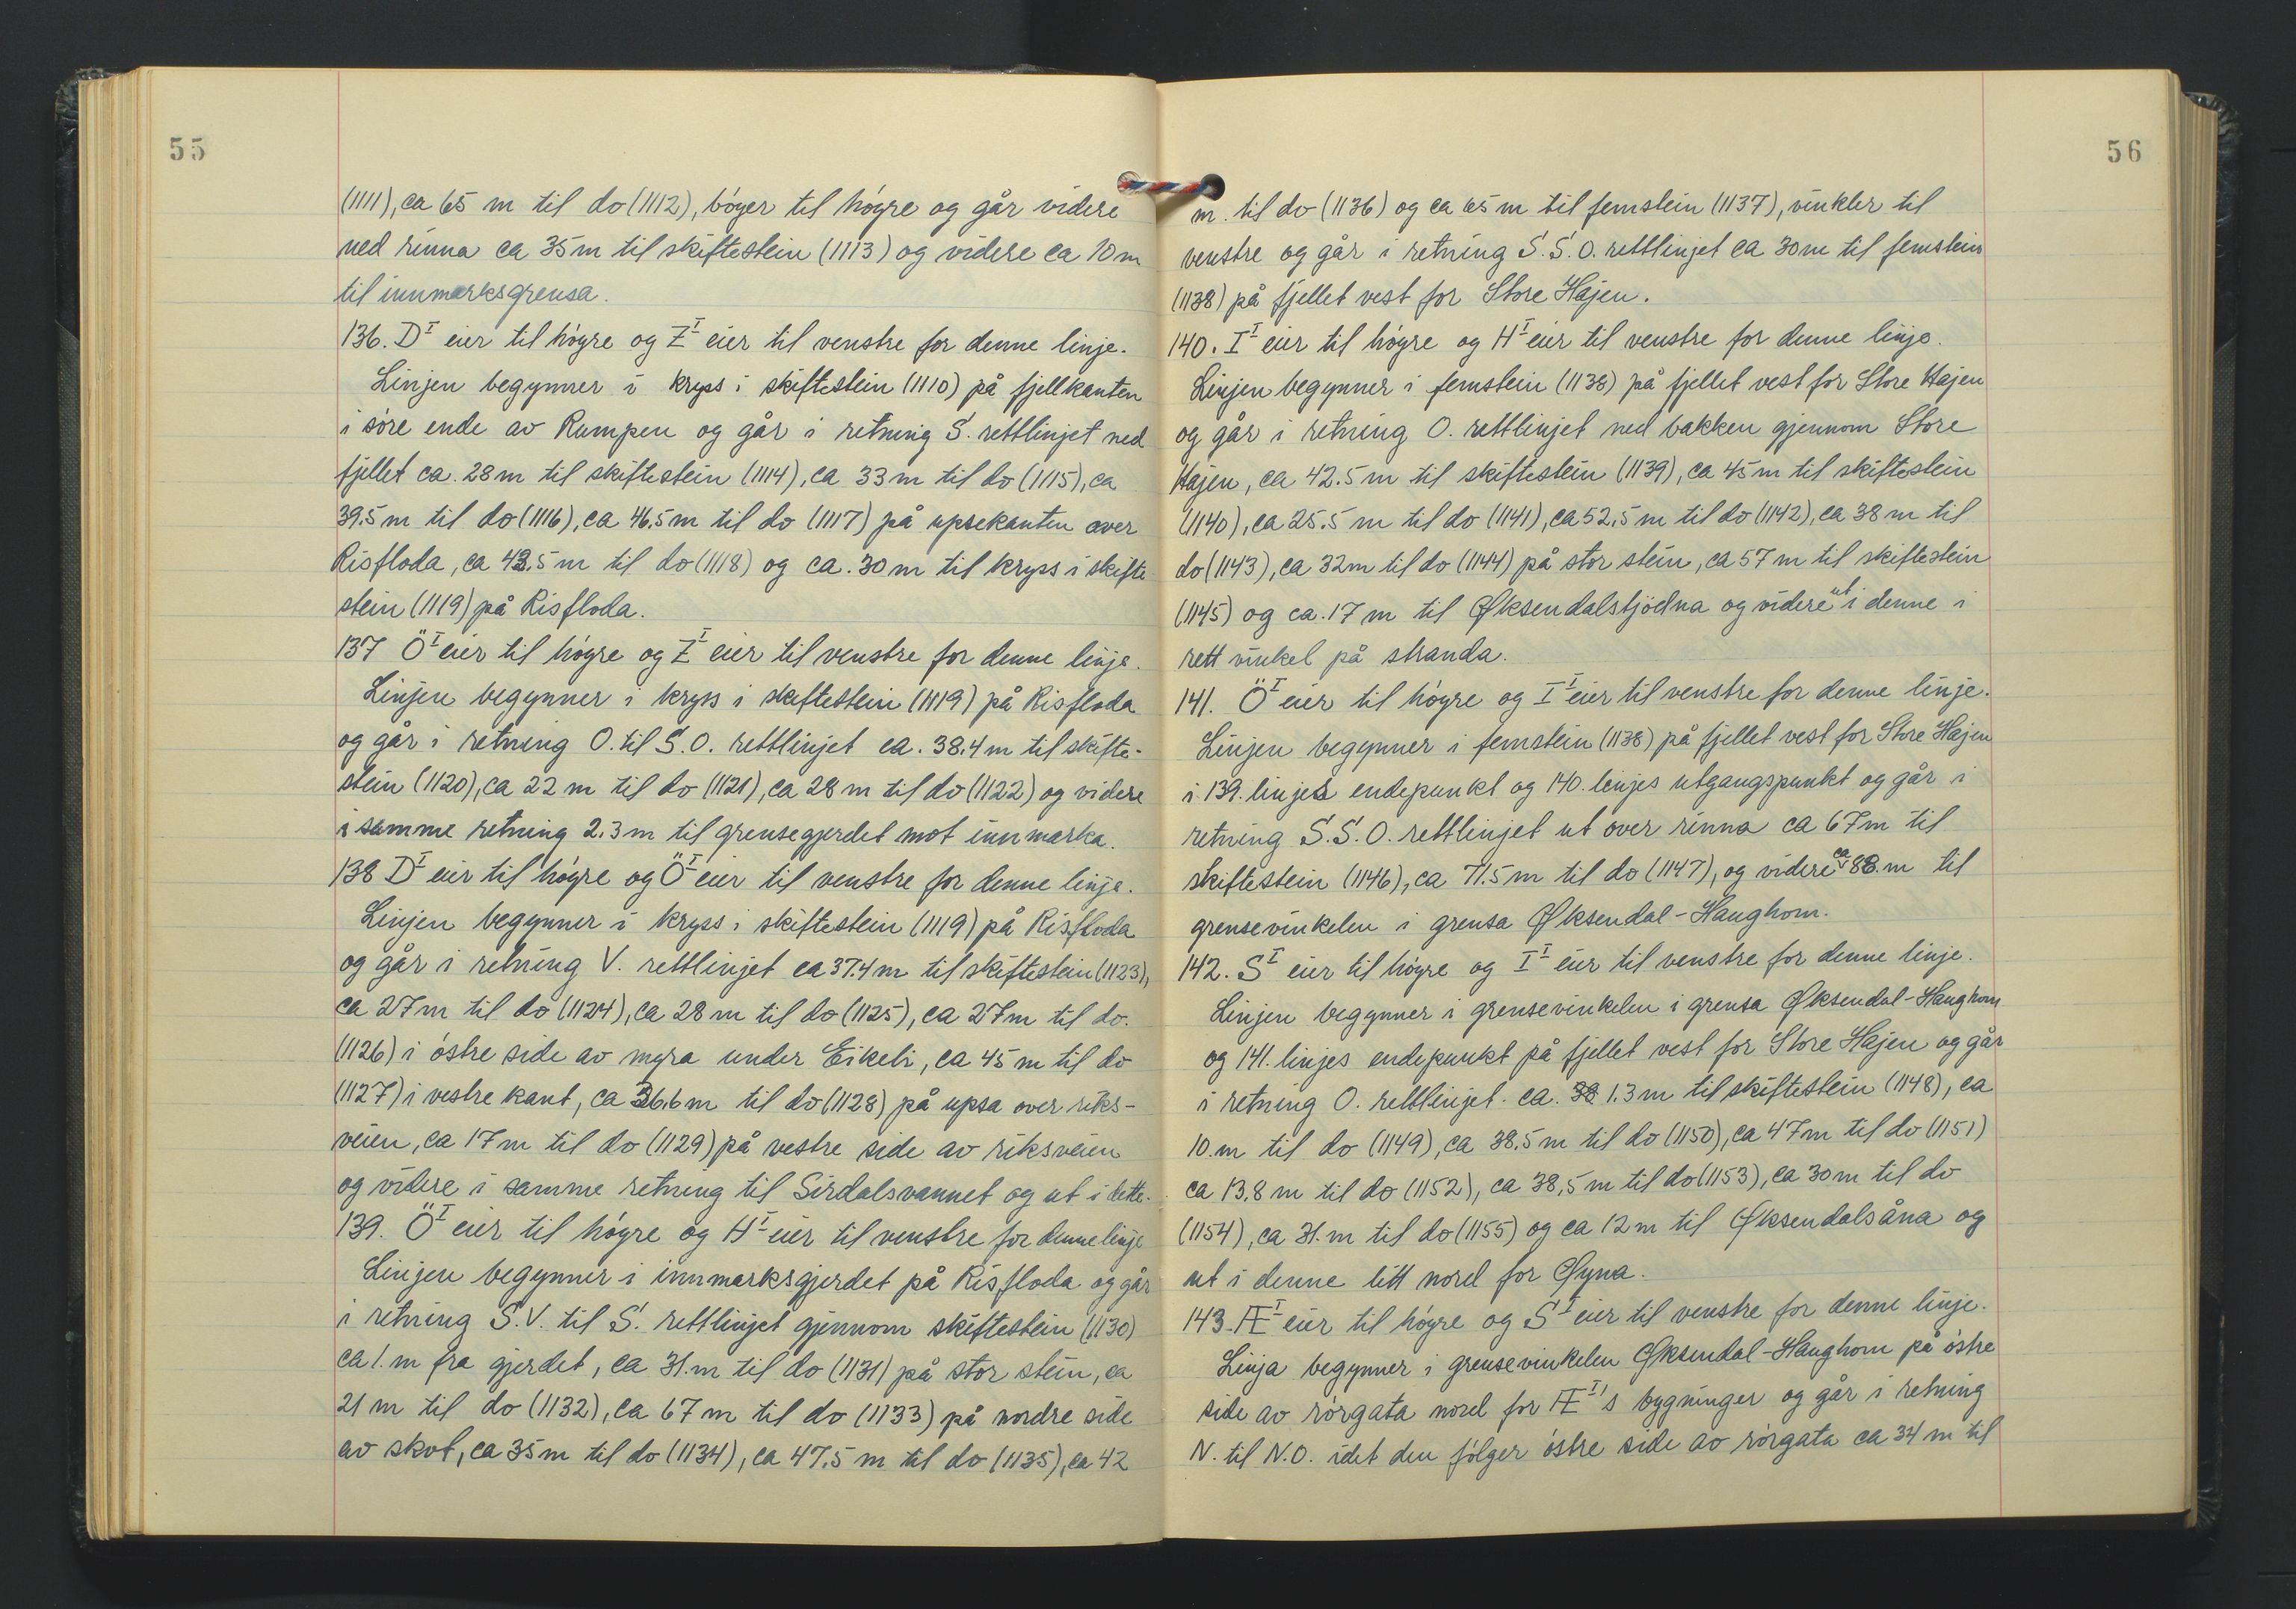 55
(1111), ca 65 m til do (1112), bóyer til hóyre og går videre
ned rinna ca 35 m til skiftestein (1113) og videre ca 10 m
til innmarksgrensa.
136. D<sup>I</sup> eier til hóyre og Z<sup>I</sup> eier til venstre for denne linje.
Linjen begynner i kryss i skiftestein (1110) på fjellkanten
i sóre ende av Rumpen og går i retning S. rettlinjet ned
fjellet ca. 28 m til skiftestein (1114), ca 33 m til do (1115), ca
39.5 m til do (1116), ca 46.5 m til do (1117) på upsekanten over
Risfloda, ca 42.5 m til do (1118) og ca. 30 m til kryss i skifte-
stein (1119) på Risfloda.
137 Ö<sup>I</sup> eier til hóyre og Z<sup>I</sup> eier til venstre for denne linje.
Linjen begynner i kryss i skiftestein (1119) på Risfloda
og går i retning O. til S.O. rettlinjet ca. 38.4 m til skifte-
stein (1120), ca 22 m til do (1121), ca 28 m til do (1122) og videre
i samme retning 2.3 m til grensegjerdet mot innmarka.
138 D<sup>I</sup> eier til hóyre og Ö<sup>I</sup> eier til venstre for denne linje.
Linjen begynner i kryss i skiftestein (1119) på Risfloda
og går i retning V. rettlinjet ca 37.4 m til skiftestein (1123),
ca 27 m til do (1124), ca 28 m til do (1125), ca 27 m til do.
(1126) i óstre side av myra under Eikeli, ca 45 m til do
(1127) i vestre kant, ca 36.6 m til do (1128) på upsa over riks-
veien, ca 17 m til do (1129) på vestre side av riksveien
og videre i samme retning til Sirdalsvannet og ut i dette.
139. Ö<sup>I</sup> eier til hóyre og H<sup>I</sup> eier til venstre for denne linje
Linjen begynner i innmarksgjerdet på Risfloda og går
i retning S.V. til S. rettlinjet gjennom skiftestein (1130)
ca 1. m fra gjerdet, ca 31. m til do (1131) på stor stein, ca
21 m til do (1132), ca 67 m til do (1133) på nordre side
av skot, ca 35 m til do (1134), ca 47,5 m til do (1135), ca 42
56
m. til do (1136) og ca 65 m til femstein (1137), vinkler til
venstre og går i retning S.S.O. rettlinjet ca 30 m til femstein
(1138) på fjellet vest for Store Hajen.
140. I<sup>I</sup> eier til hóyre og H<sup>I</sup> eier til venstre for denne linje.
Linjen begynner i femstein (1138) på fjellet vest for Store Hajen
og går i retning O. rettlinjet ned bakken gjennom Store
Hajen, ca 42.5 m til skiftestein (1139), ca 45 m til skiftestein
(1140), ca 25.5 m til do (1141), ca 52,5 m til do (1142), ca 38 m til
do (1143), ca 32 m til do (1144) på stor stein, ca 57 m til skiftestein
(1145) og ca. 17 m til Øksendalstjödna og videre ut i denne i
rett vinkel på stranda.
141. Ö<sup>I</sup> eier til hóyre og I<sup>I</sup> eier til venstre for denne linje.
Linjen begynner i femstein (1138) på fjellet vest for Store Hajen
i 139. linjes endepunkt og 140. linjes utgangspunkt og går i
retning S.S.O. rettlinjet ut over rinna ca 67 m til
skiftestein (1146), ca 71.5 m til do (1147), og videre ca 88. m til
grensevinkelen i grensa Øksendal-Haughom.
142. S<sup>I</sup> eier til hóyre og I<sup>I</sup> eier til venstre for denne linje.
Linjen begynner i grensevinkelen i grensa Øksendal-Haughom
og 141. linjes endepunkt på fjellet vest for Store Hajen og går
i retning O. rettlinjet. ca. 1.3 m til skiftestein (1148), ca
10. m til do (1149), ca 38,5 m til do (1150), ca 47 m til do (1151)
ca 13,8 m til do (1152), ca 38,5 m til do (1153), ca 30 m til do
(1154), ca 31. m til do (1155) og ca 12 m til Øksendalsåna og
ut i denne litt nord for Øyna.
143. Æ<sup>I</sup> eier til hóyre og S<sup>I</sup> eier til venstre for denne linje.
Linja begynner i grensevinkelen Øksendal-Haughom på óstre
side av rórgata nord for Æ<sup>I</sup>'s bygninger og går i retning
N. til N.O. idet den fólger óstre side av rórgata ca 34 m til